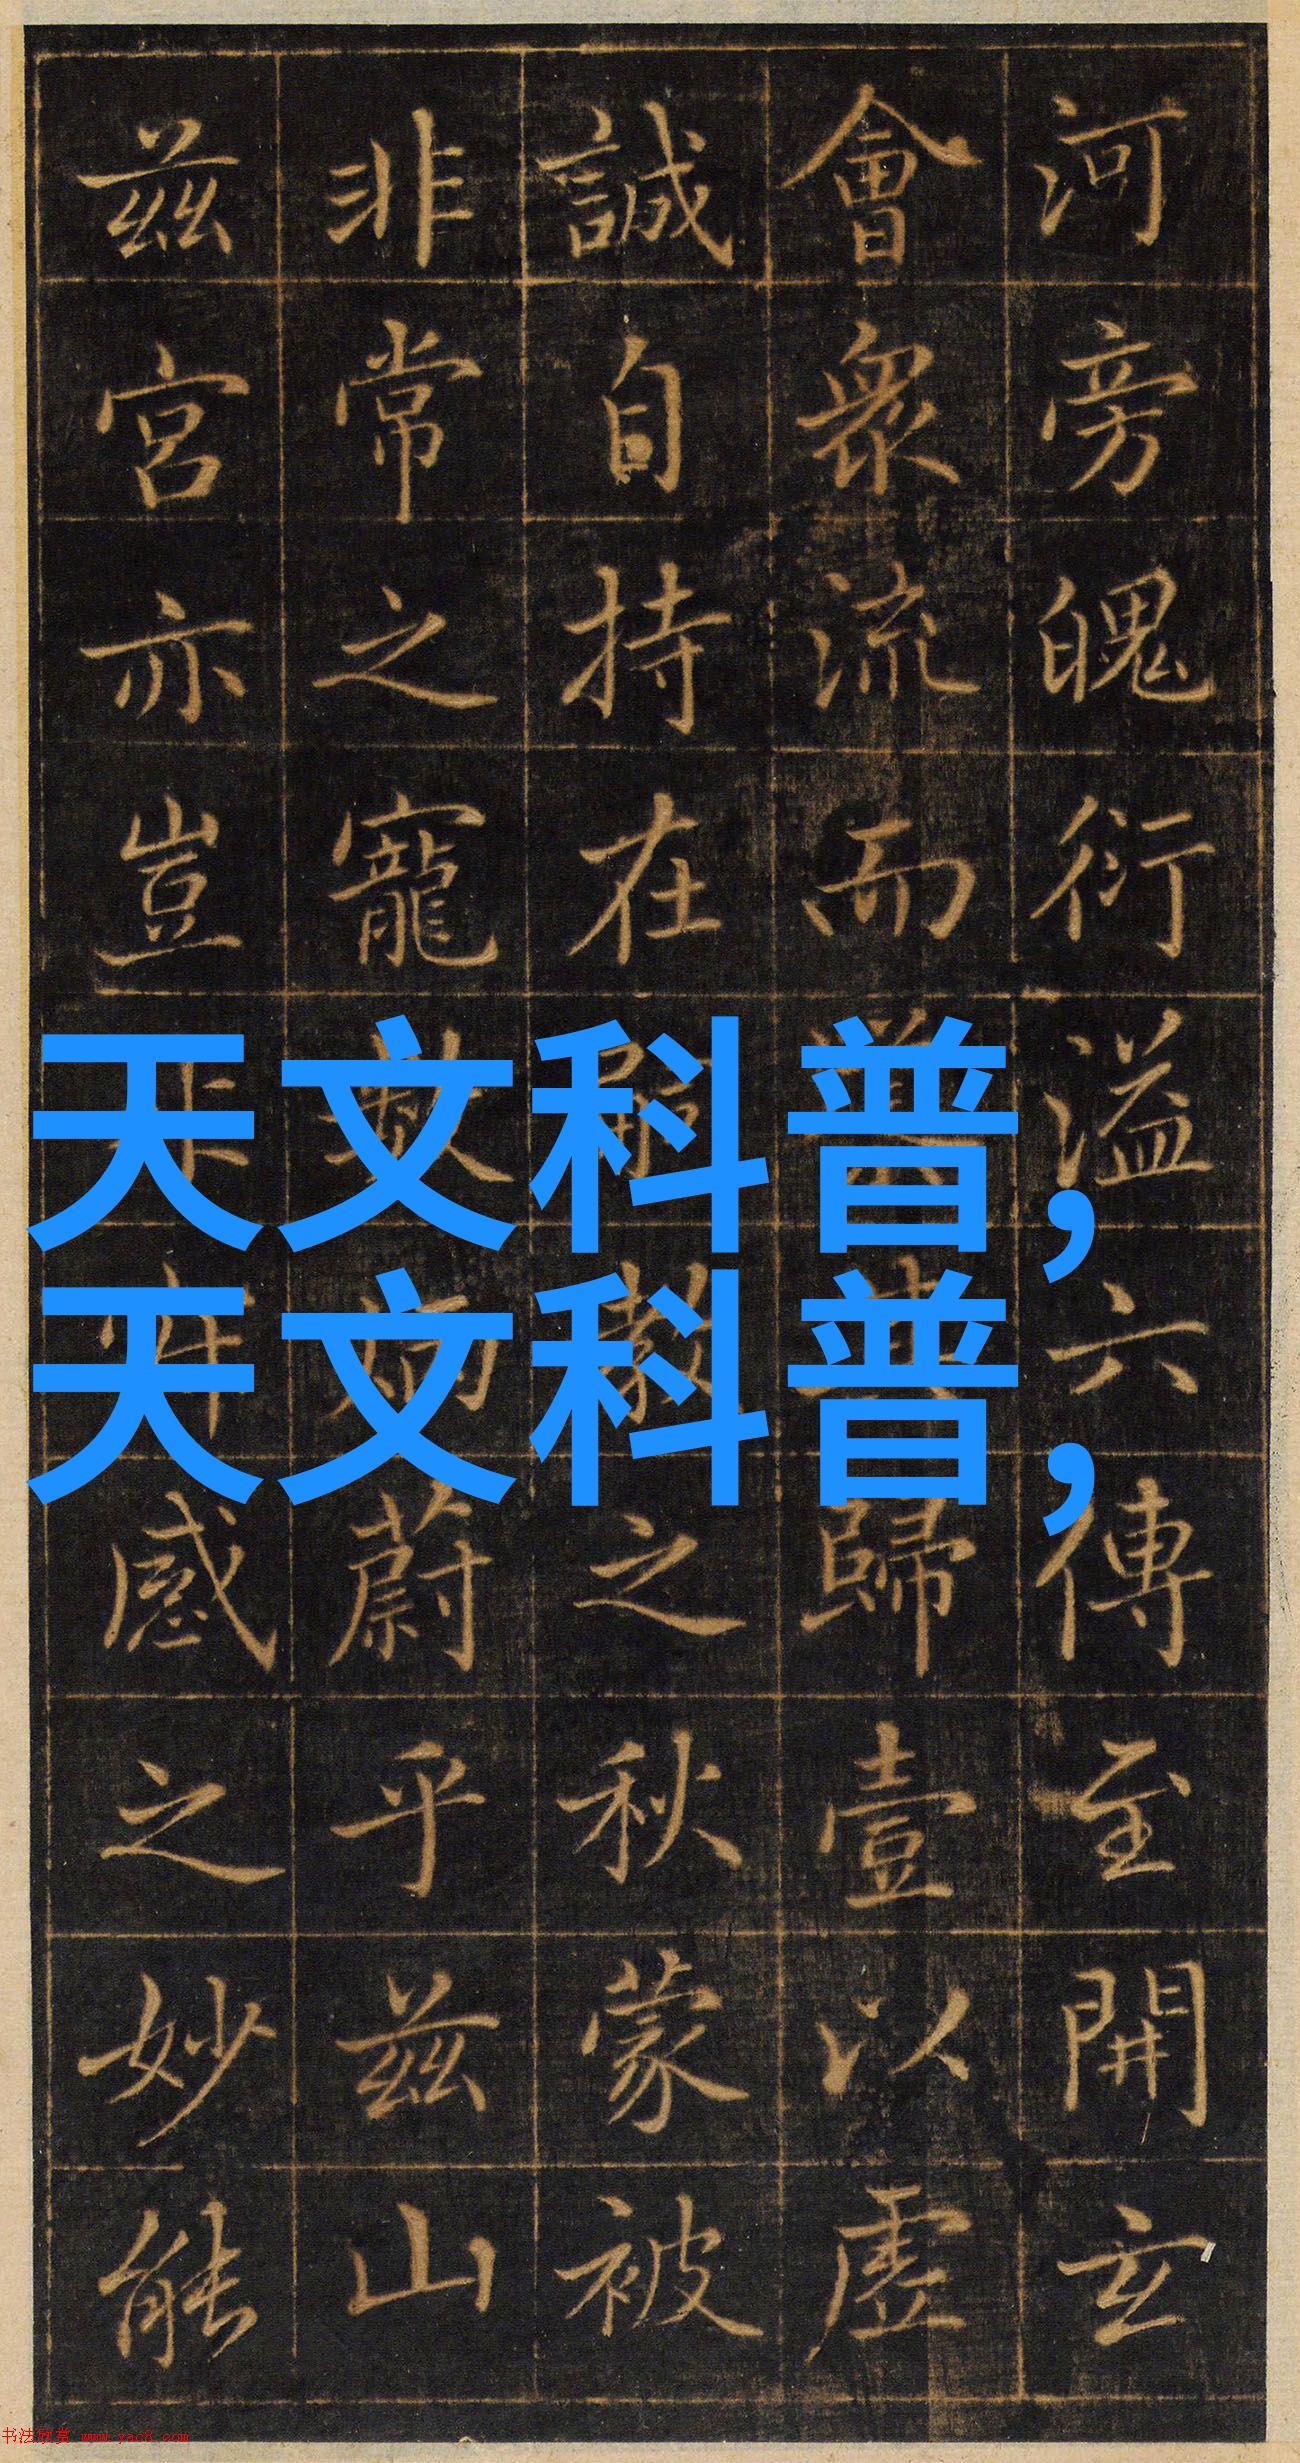 河旁魄衍溢六傳至開玄
會衆流而歸壹以虛
誠自持在之秋蒙被
非常之寵蔚乎茲山
茲宮亦豈非感之妙能
天文科普,
天文科普,
书法欣赏 www.yac8.com